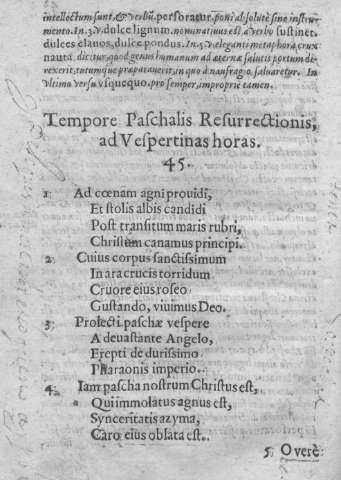 intellectum sunt, & verbũ, perforatur, poni absolutè sine instru-
mento. In 3. v. dolce lignum, nominatiuus est, à verbo sustinet,
dulces clauos, dulce pondus. In 5. v. eleganti metaphora, crux
nauta, dicitur, quod genus humanum ad æternæ salutis portum di-
rexerit, tutumque præparauerit, in quo à naufragio, saluaretur. In
vltimo versu vsquequo, pro semper, impropriè tamen.
Tempore Paschalis Resurrectionis,
ad Vespertinas horas.
45.
1. Ad cœnam agni prouidi,
Et stolis albis candidi
Post transitum maris rubri,
Christum canamus principi.
2. Cuius corpus sanctissimum
In ara crucis torridum
Cruore eius roseo
Gustando, viuimus Deo.
3. Protecti paschæ vespere
A deuastante Angelo,
Erepti de durissimo
Pharaonis imperio.
4. Iam pascha nostrum Christus est,
Qui immolatus agnus est,
Synceritatis azyma,
Caro eius oblata est.
5. O verè: